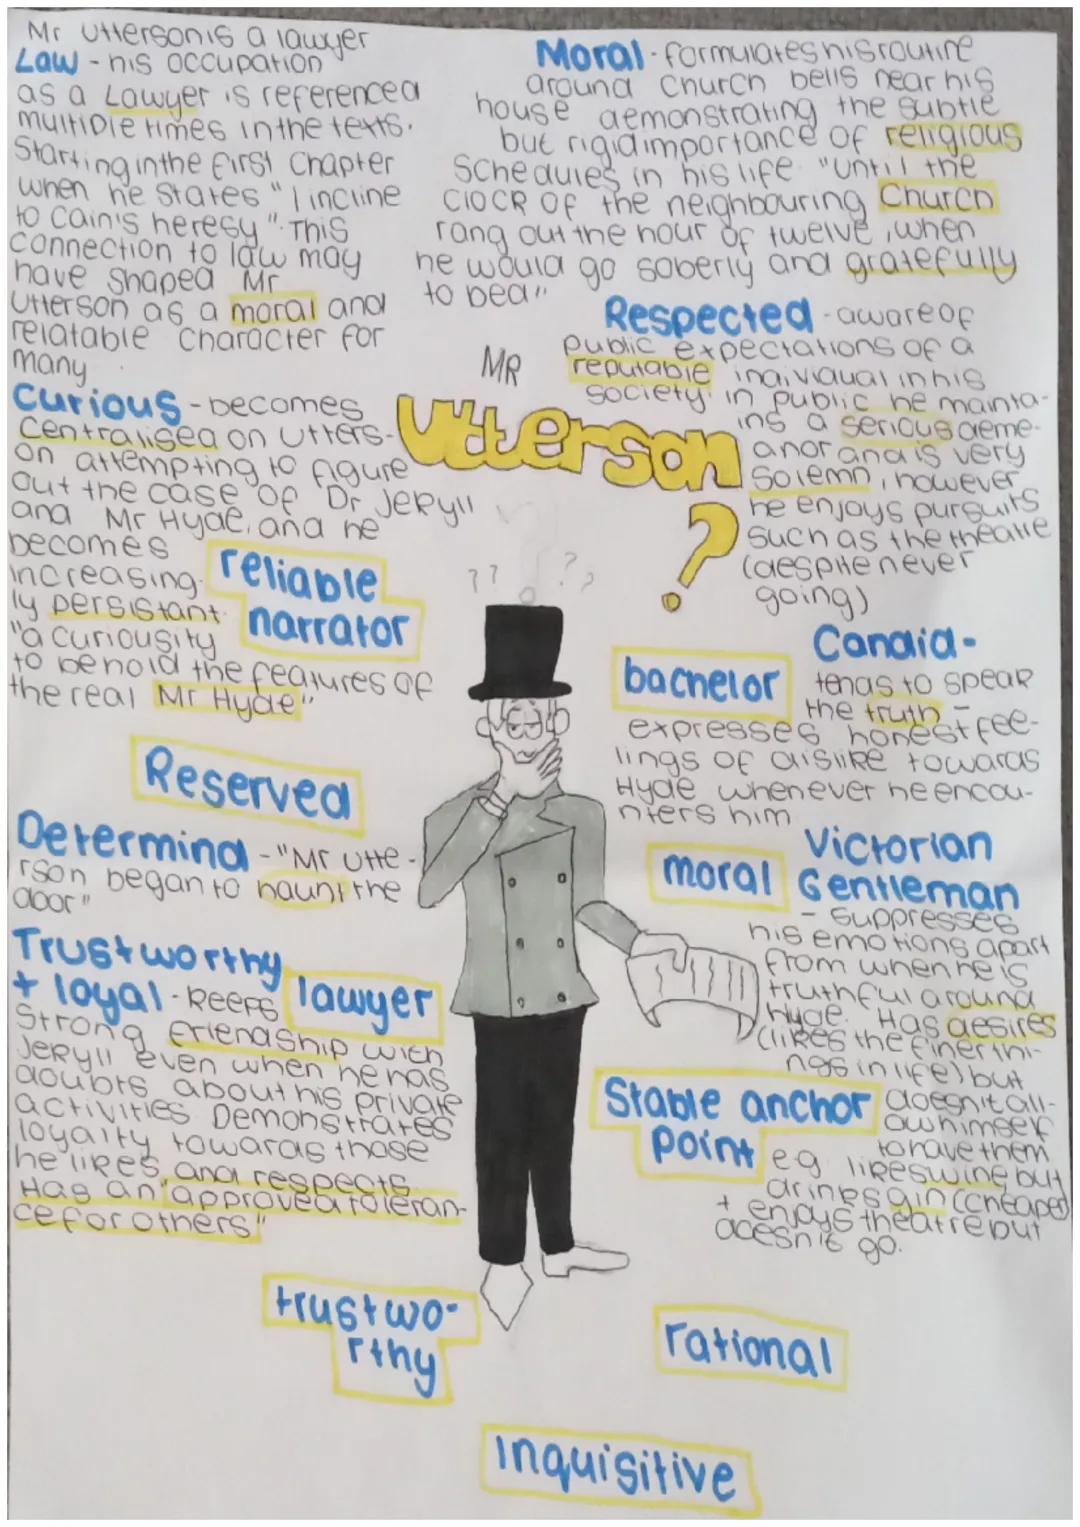 Mr Utterson is a lawyer
Law - his occupation
as a Lawyer is referenced
multiple times in the texts.
Starting in the first Chapter
when he States "I incline
to Cain's heresy". This
connection to law may
have shaped Mr
Utterson as a moral and
relatable character for
many
Curious - becomes
Centralised on Utters-
on attempting to figure
out the case of Dr Jekyll
and Mr Hyde, and he
becomes
increasing-
ly persistant.
"a curiousity
to behold the features of
the real Mr Hyde"
reliable
narrator
Reserved
Determind - "Mr Utte-
rson began to haunt the
door"
Trustworthy
+ loyal - keeps
Strong friendship with
Jekyll even when he has
doubts about his private
activities. Demonstrates
loyalty towards those
he likes and respects.
Has an "approved toleran-
ce for others"
lawyer
trustwo-
rthy
MR
Utterson
?
??
??
Moral - formulates his routine
around Church bells near his
house demonstrating the subtle
but rigid importance of religious
Schedules in his life. "Until the
clock of the neighbouring Church
rang out the hour of twelve, when
he would go soberly and gratefully
to bed"
Respected - aware of
public expectations of a
reputable individual in his
society. in public he mainta-
ins a serious deme-
anor and is very
Solemn, however
he enjoys pursuits
such as the theatre
(despite never
going)
bachelor
Candid -
tends to speak
the truth -
expresses honest fee-
lings of dislike towards
Hyde whenever he encou-
nters him
moral
Victorian
Gentleman
- suppresses
his emotions apart
from when he is
truthful around
Hyde. Has desires
(likes the finer thi-
ngs in life) but
doesn't all-
ow himself
to have them
e.g. likes wine but
drinks gin (cheaper)
+ enjoys theatre but
doesn't go.
Stable anchor
point
rational
Inquisitive